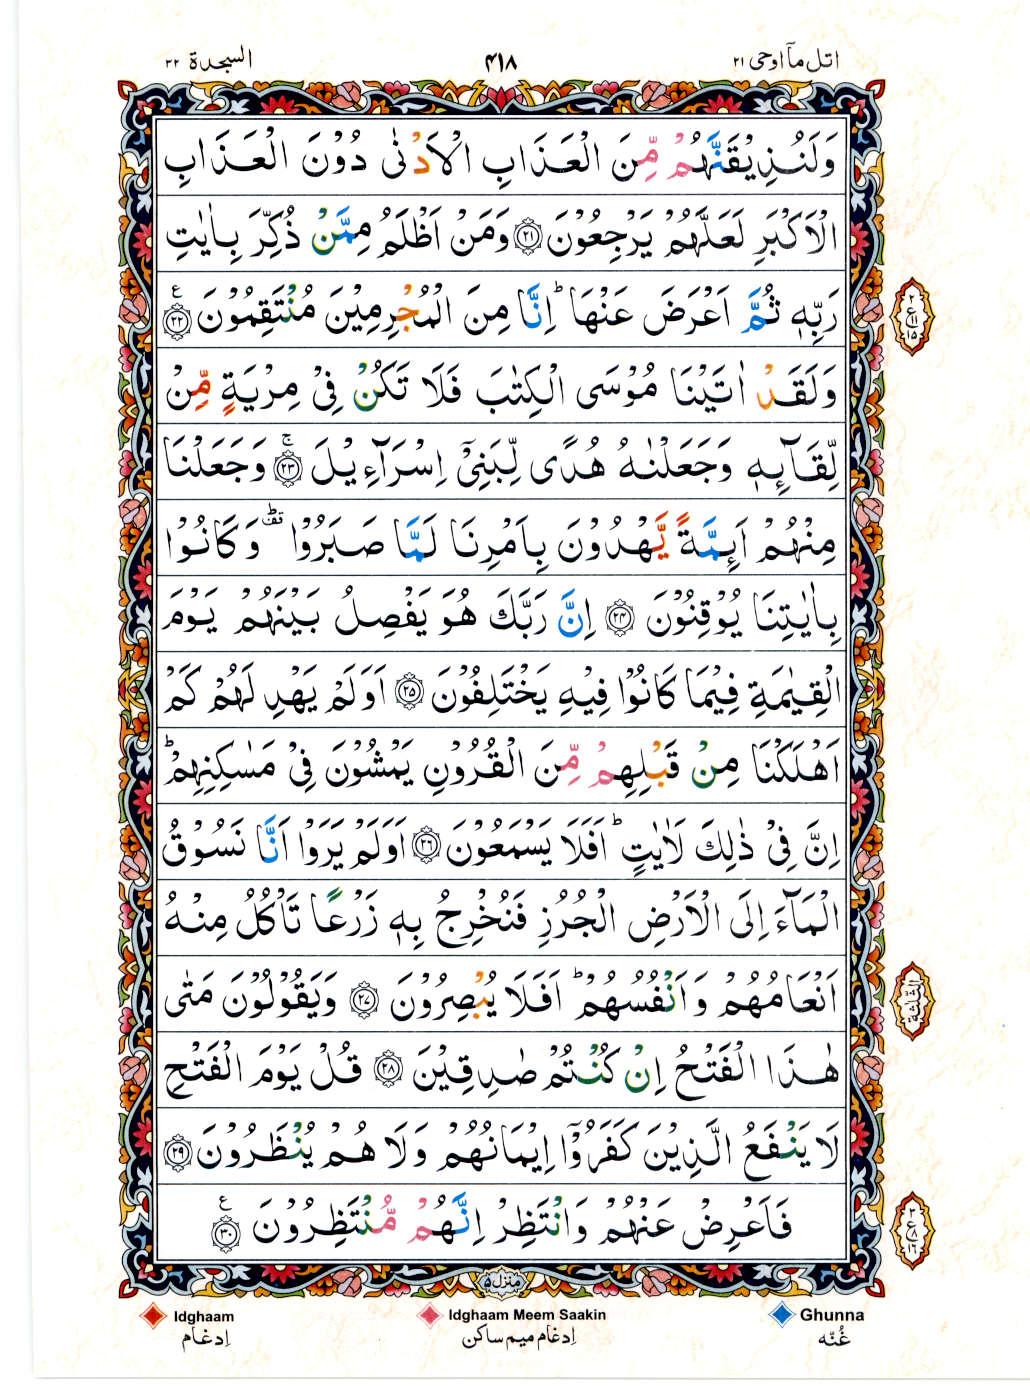 اتل مآ اوحی ۲۱
۴۱۸
السجدة ۳۲
وَلَنُذِيْقَنَّهُمْ مِّنَ الْعَذَابِ الْاَدْنٰى دُوْنَ الْعَذَابِ
الْاَكْبَرِ لَعَلَّهُمْ يَرْجِعُوْنَ ۝۲۱ وَمَنْ اَظْلَمُ مِمَّنْ ذُكِّرَ بِاٰيٰتِ
رَبِّهٖ ثُمَّ اَعْرَضَ عَنْهَا ؕ اِنَّا مِنَ الْمُجْرِمِيْنَ مُنْتَقِمُوْنَ ۝۲۲ ع
وَلَقَدْ اٰتَيْنَا مُوْسَى الْكِتٰبَ فَلَا تَكُنْ فِيْ مِرْيَةٍ مِّنْ
لِّقَآئِهٖ وَجَعَلْنٰهُ هُدًى لِّبَنِيْٓ اِسْرَآءِيْلَ ۝۲۳ ۚ وَجَعَلْنَا
مِنْهُمْ اَئِمَّةً يَّهْدُوْنَ بِاَمْرِنَا لَمَّا صَبَرُوْا ؕ قف وَكَانُوْا
بِاٰيٰتِنَا يُوْقِنُوْنَ ۝۲۴ اِنَّ رَبَّكَ هُوَ يَفْصِلُ بَيْنَهُمْ يَوْمَ
الْقِيٰمَةِ فِيْمَا كَانُوْا فِيْهِ يَخْتَلِفُوْنَ ۝۲۵ اَوَلَمْ يَهْدِ لَهُمْ كَمْ
اَهْلَكْنَا مِنْ قَبْلِهِمْ مِّنَ الْقُرُوْنِ يَمْشُوْنَ فِيْ مَسٰكِنِهِمْ ؕ
اِنَّ فِيْ ذٰلِكَ لَاٰيٰتٍ ؕ اَفَلَا يَسْمَعُوْنَ ۝۲۶ اَوَلَمْ يَرَوْا اَنَّا نَسُوْقُ
الْمَآءَ اِلَى الْاَرْضِ الْجُرُزِ فَنُخْرِجُ بِهٖ زَرْعًا تَاْكُلُ مِنْهُ
اَنْعَامُهُمْ وَاَنْفُسُهُمْ ؕ اَفَلَا يُبْصِرُوْنَ ۝۲۷ وَيَقُوْلُوْنَ مَتٰى
هٰذَا الْفَتْحُ اِنْ كُنْتُمْ صٰدِقِيْنَ ۝۲۸ قُلْ يَوْمَ الْفَتْحِ
لَا يَنْفَعُ الَّذِيْنَ كَفَرُوْٓا اِيْمَانُهُمْ وَلَا هُمْ يُنْظَرُوْنَ ۝۲۹
فَاَعْرِضْ عَنْهُمْ وَانْتَظِرْ اِنَّهُمْ مُّنْتَظِرُوْنَ ۝۳۰ ع
۲
ع ۱۱
۱۵
الثلثة
۳
ع ۸
۱۶
منزل ۵
Idghaam Idghaam Meem Saakin Ghunna
اِدغام اِدغام میم ساکن غُنّه